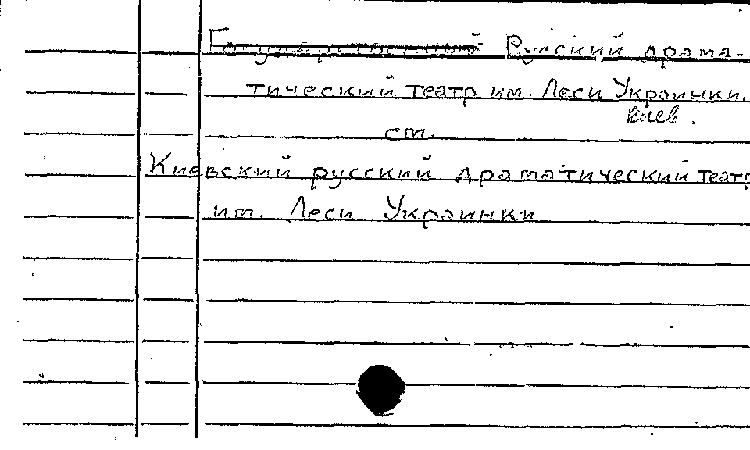 Русский драма-
тический театр им. Леси Украинки.
Киев.
см.
Киевский русский драматический театр
им. Леси Украинки